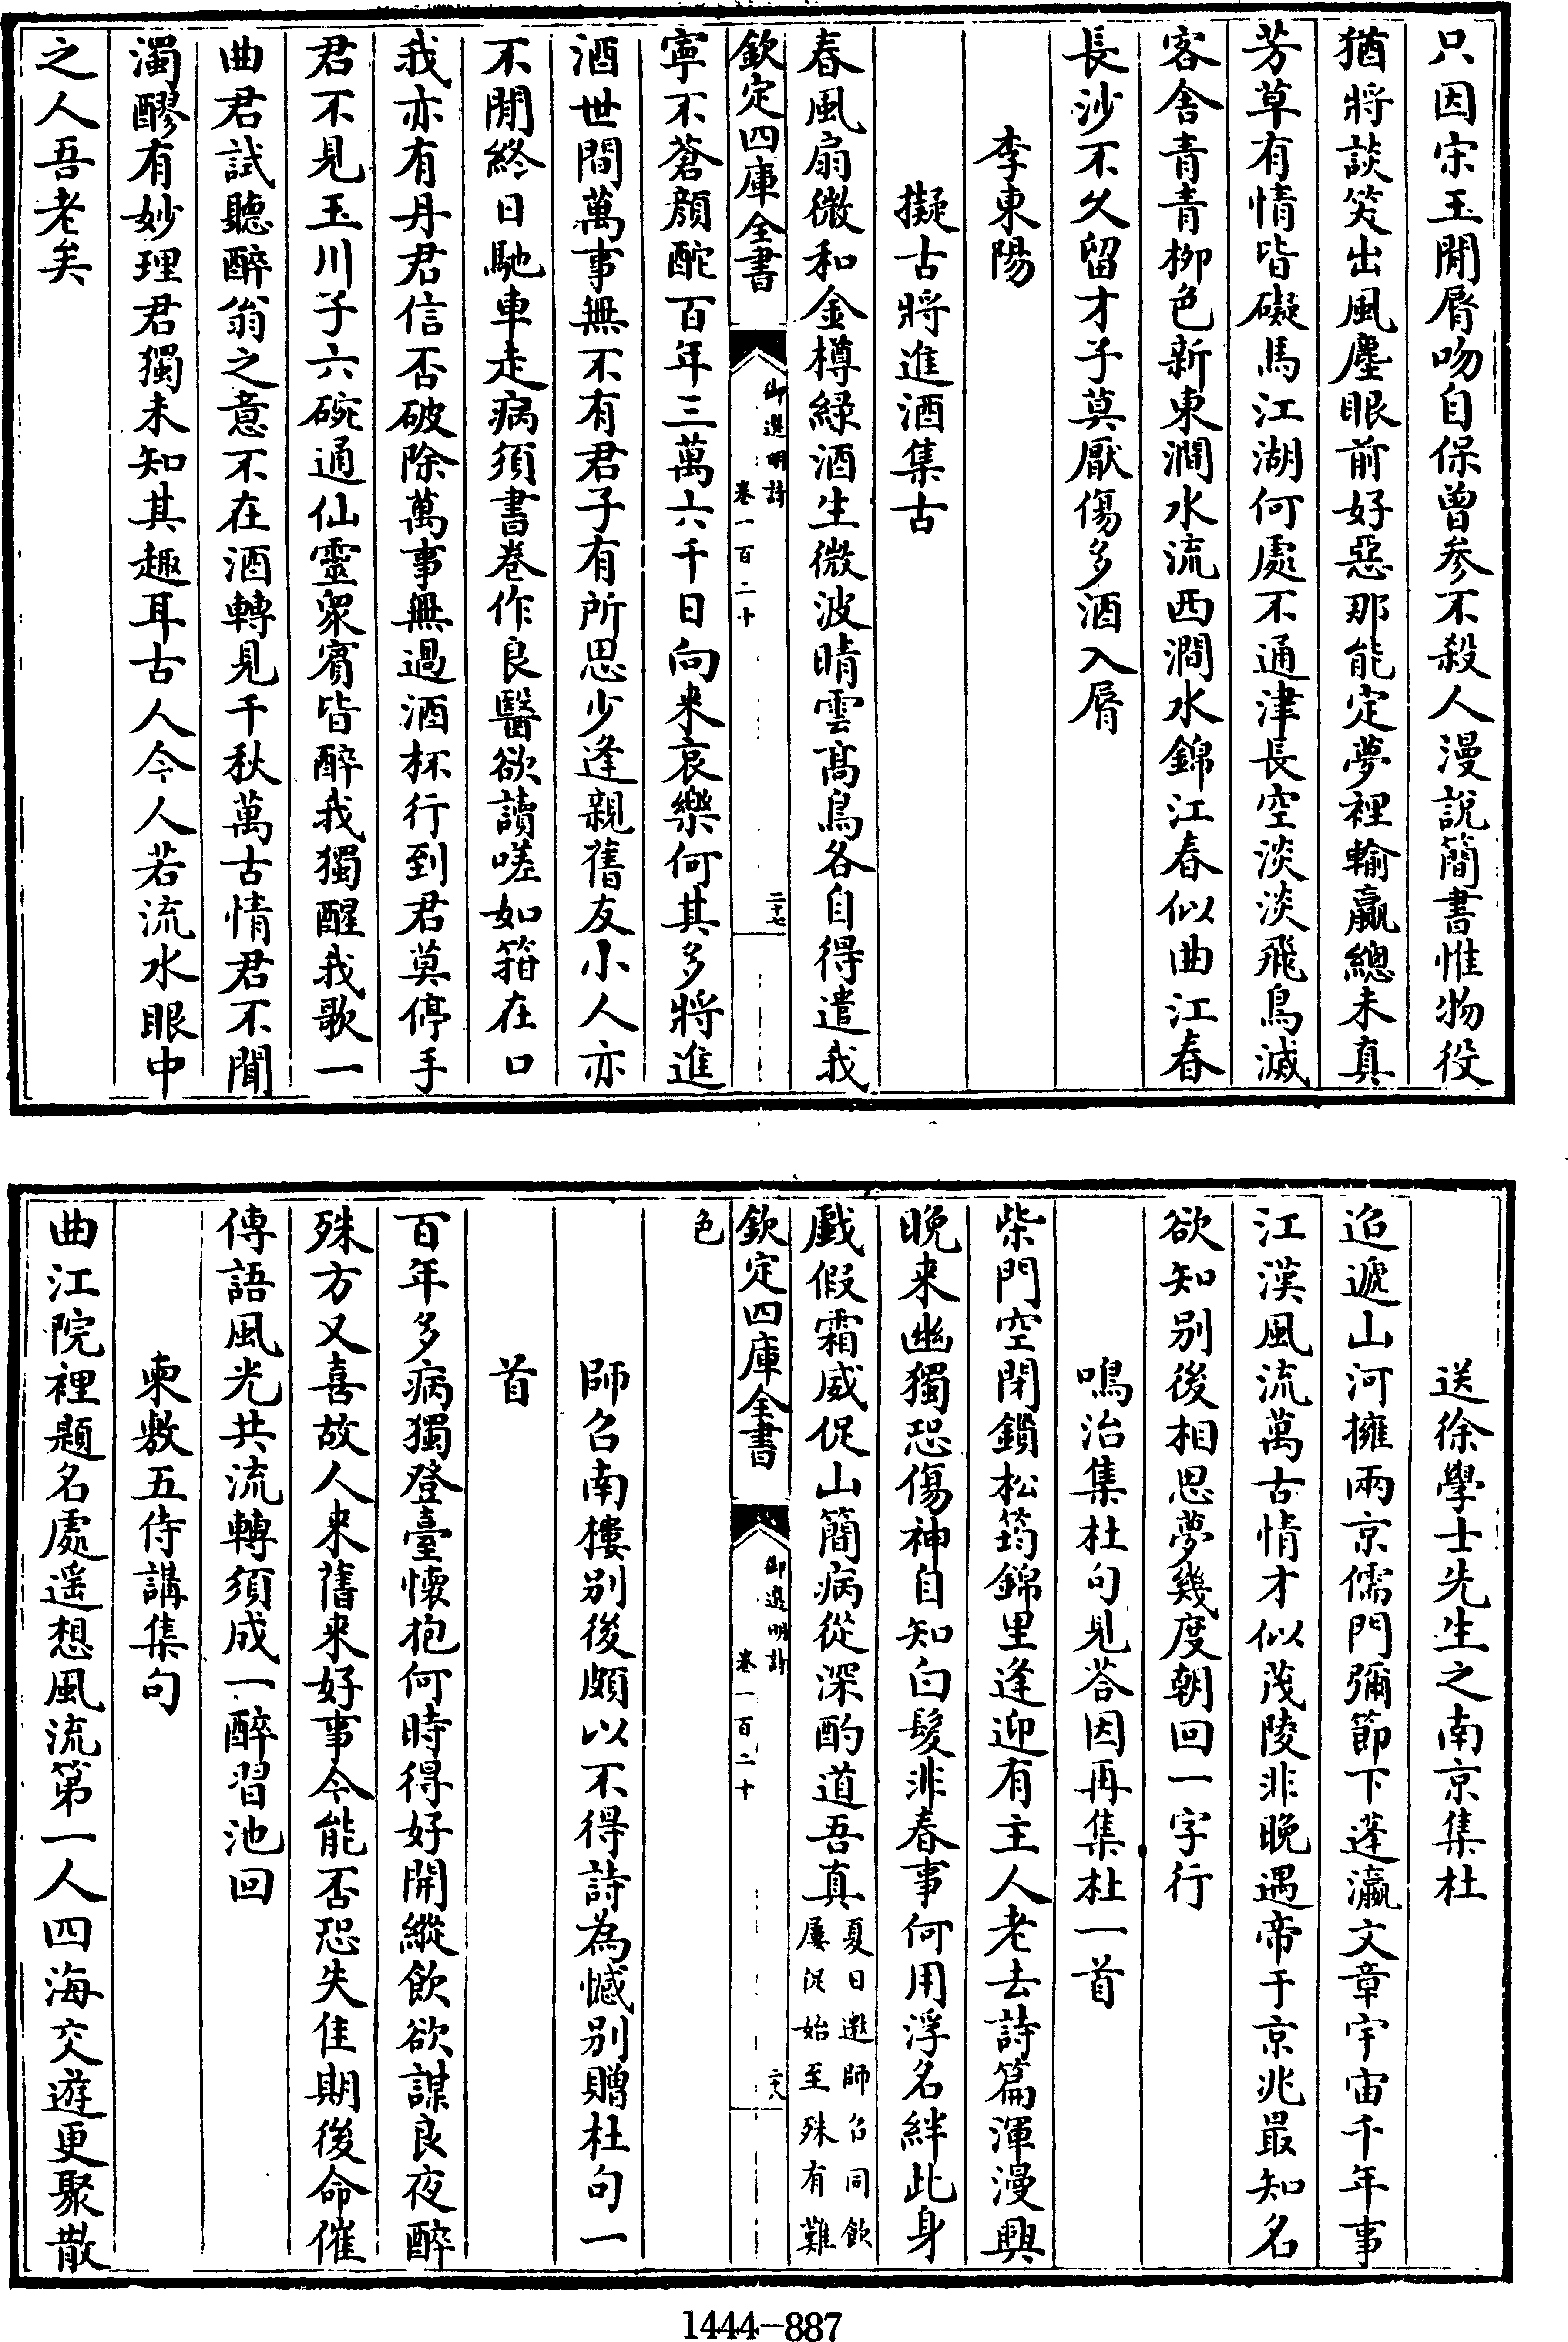 只因宋玉閒脣吻自保曾參不殺人漫說簡書惟物役
猶將談笑出風塵眼前好惡那能定夢裡輸贏總未真
芳草有情皆礙馬江湖何處不通津長空淡淡飛鳥滅
客舍青青柳色新東澗水流西澗水錦江春似曲江春
長沙不久留才子莫厭傷多酒入脣
李東陽
擬古將進酒集古
春風扇微和金樽綠酒生微波晴雲髙鳥各自得遣我
欽定四庫全書
御選明詩
卷一百二十
二十七
寧不蒼顔酡百年三萬六千日向来哀樂何其多將進
酒世間萬事無不有君子有所思少逢親舊友小人亦
不閒終日馳車走病須書卷作良醫欲讀嗟如箝在口
我亦有丹君信否破除萬事無過酒杯行到君莫停手
君不見玉川子六碗通仙靈衆賓皆醉我獨醒我歌一
曲君試聽醉翁之意不在酒轉見千秋萬古情君不聞
濁醪有妙理君獨未知其趣耳古人今人若流水眼中
之人吾老矣
送徐學士先生之南京集杜
迢遞山河擁兩京儒門彌節下蓬瀛文章宇宙千年事
江漢風流萬古情才似茂陵非晚遇帝于京兆最知名
欲知别後相思夢幾度朝回一字行
鳴治集杜句見荅因再集杜一首
柴門空閉鎖松筠錦里逢迎有主人老去詩篇渾漫興
晚来幽獨恐傷神自知白髮非春事何用浮名絆此身
戲假霜威促山簡病從深酌道吾真夏日邀師召同飲
屢促始至殊有難
欽定四庫全書
御選明詩
卷一百二十
二十八
色
師召南樓别後頗以不得詩為憾别贈杜句一
首
百年多病獨登臺懷抱何時得好開縱飲欲謀良夜醉
殊方又喜故人来舊来好事今能否恐失佳期後命催
傳語風光共流轉須成一醉習池回
柬敷五侍講集句
曲江院裡題名處遥想風流第一人四海交遊更聚散
1444-887